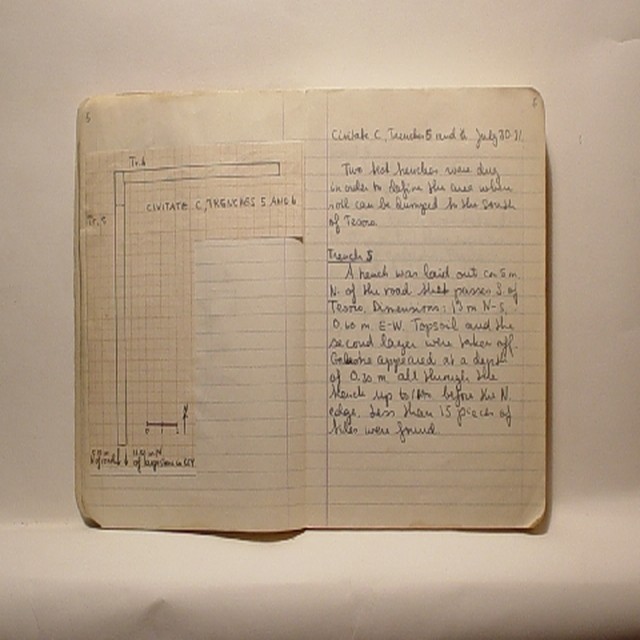 5
Tr. 6
Tr. 5
CIVITATE C, TRENCHES 5 AND 6
N
of road
6
Civitate C, Trenches 5 and 6. July 30-31.
Two test trenches were dug
in order to define the area where
soil can be dumped to the South
of Tesoro.
Trench 5
A trench was laid out ca. 5 m.
N. of the road that passes S. of
Tesoro. Dimensions: 13 m N-S,
0.60 m. E-W. Topsoil and the
second layer were taken off.
appeared at a depth
of 0.30 m all through the
trench up to before the N.
edge. Less than 15 pieces of
tiles were found.